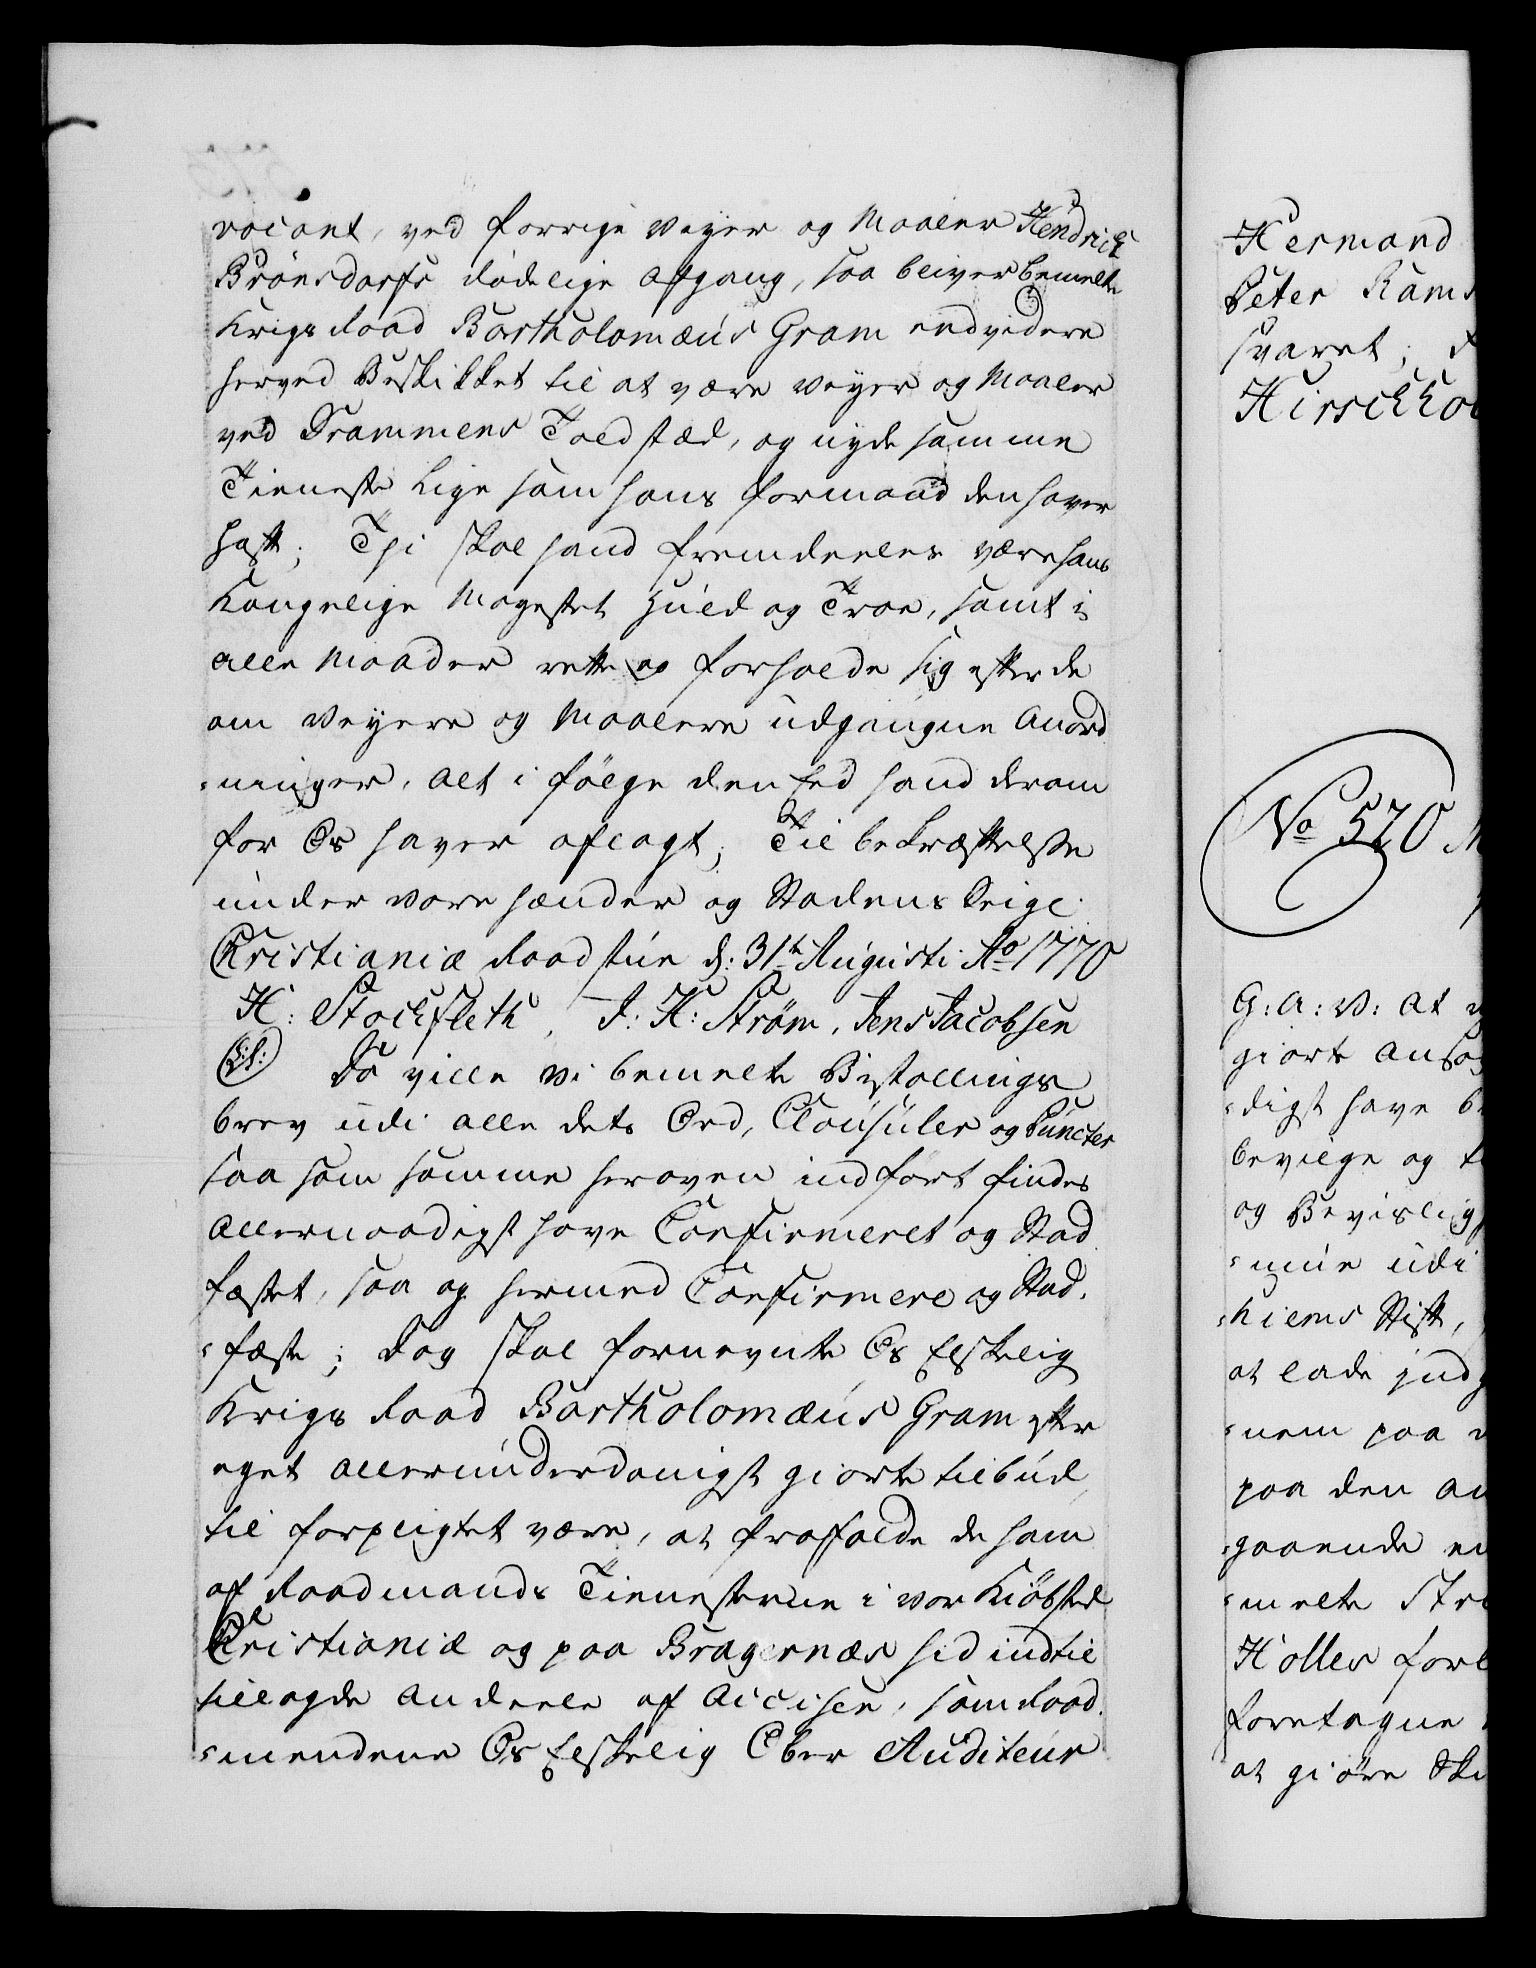 vacant, ved forrige Veyer og Maaler Hendrich
Brönsdorfs dödelige Afgang, saa bliver bemelte
Krigs Raad Bartholomæus Gram endvidere
herved Beskikket til at være Veyer og Maaler
ved Drammens Toldstæd, og nyde samme
Tieneste lige som hans Formand den haver
haft; Thi skal hand fremdeeles være hans
Kongelige Mayestet Huld og Troe, samt i
alle Maader rette og forholde sig efter de
om Veyere og Maalere udgangne Anord
-ninger, alt i fölge den Eed hand derom
for Os haver aflagt; Til bekræftelse
under vore hænder og Stadens Seigl.
Christianiæ Raadstue d: 31te Augusti Ao 1770
H: Stockfleth, J: H: Strøm, Jens Jacobsen
(L.S.) Da ville Vi bemelte Bestallings
brev udi alle dets Ord, Clausuler og Puncter
saa som samme heroven indfört findes
Allernaadigst have Confirmeret og Stad
fæstet, saa og hermed Confirmere og Stad-
-fæste; Dog skal fornevnte Os Elskelig
Krigs Raad Bartholomæus Gram efter
eget allerunderdanigst giorte tilbud,
til forpligtet være, at frafalde de ham
af Raadmands Tienesterne i vor Kiöbsted
Christianiæ og paa Bragernæs hid indtil
tillagde Andeele af Accisen, som Raad-
-mændene Os Elskelig Ober Auditeur
Hermand
Peter Rams
svaret; d
Hirschhol
No 570
G: A: V: At v
giort Ansøg
-digst have be
bevilge og t
og Bevislig
-mue udi
-hiems Stift,
at lade ind
-nem paa
paa den an
-gaaende en
-melte Str
Holles forl
foretagne
at giöre Ski